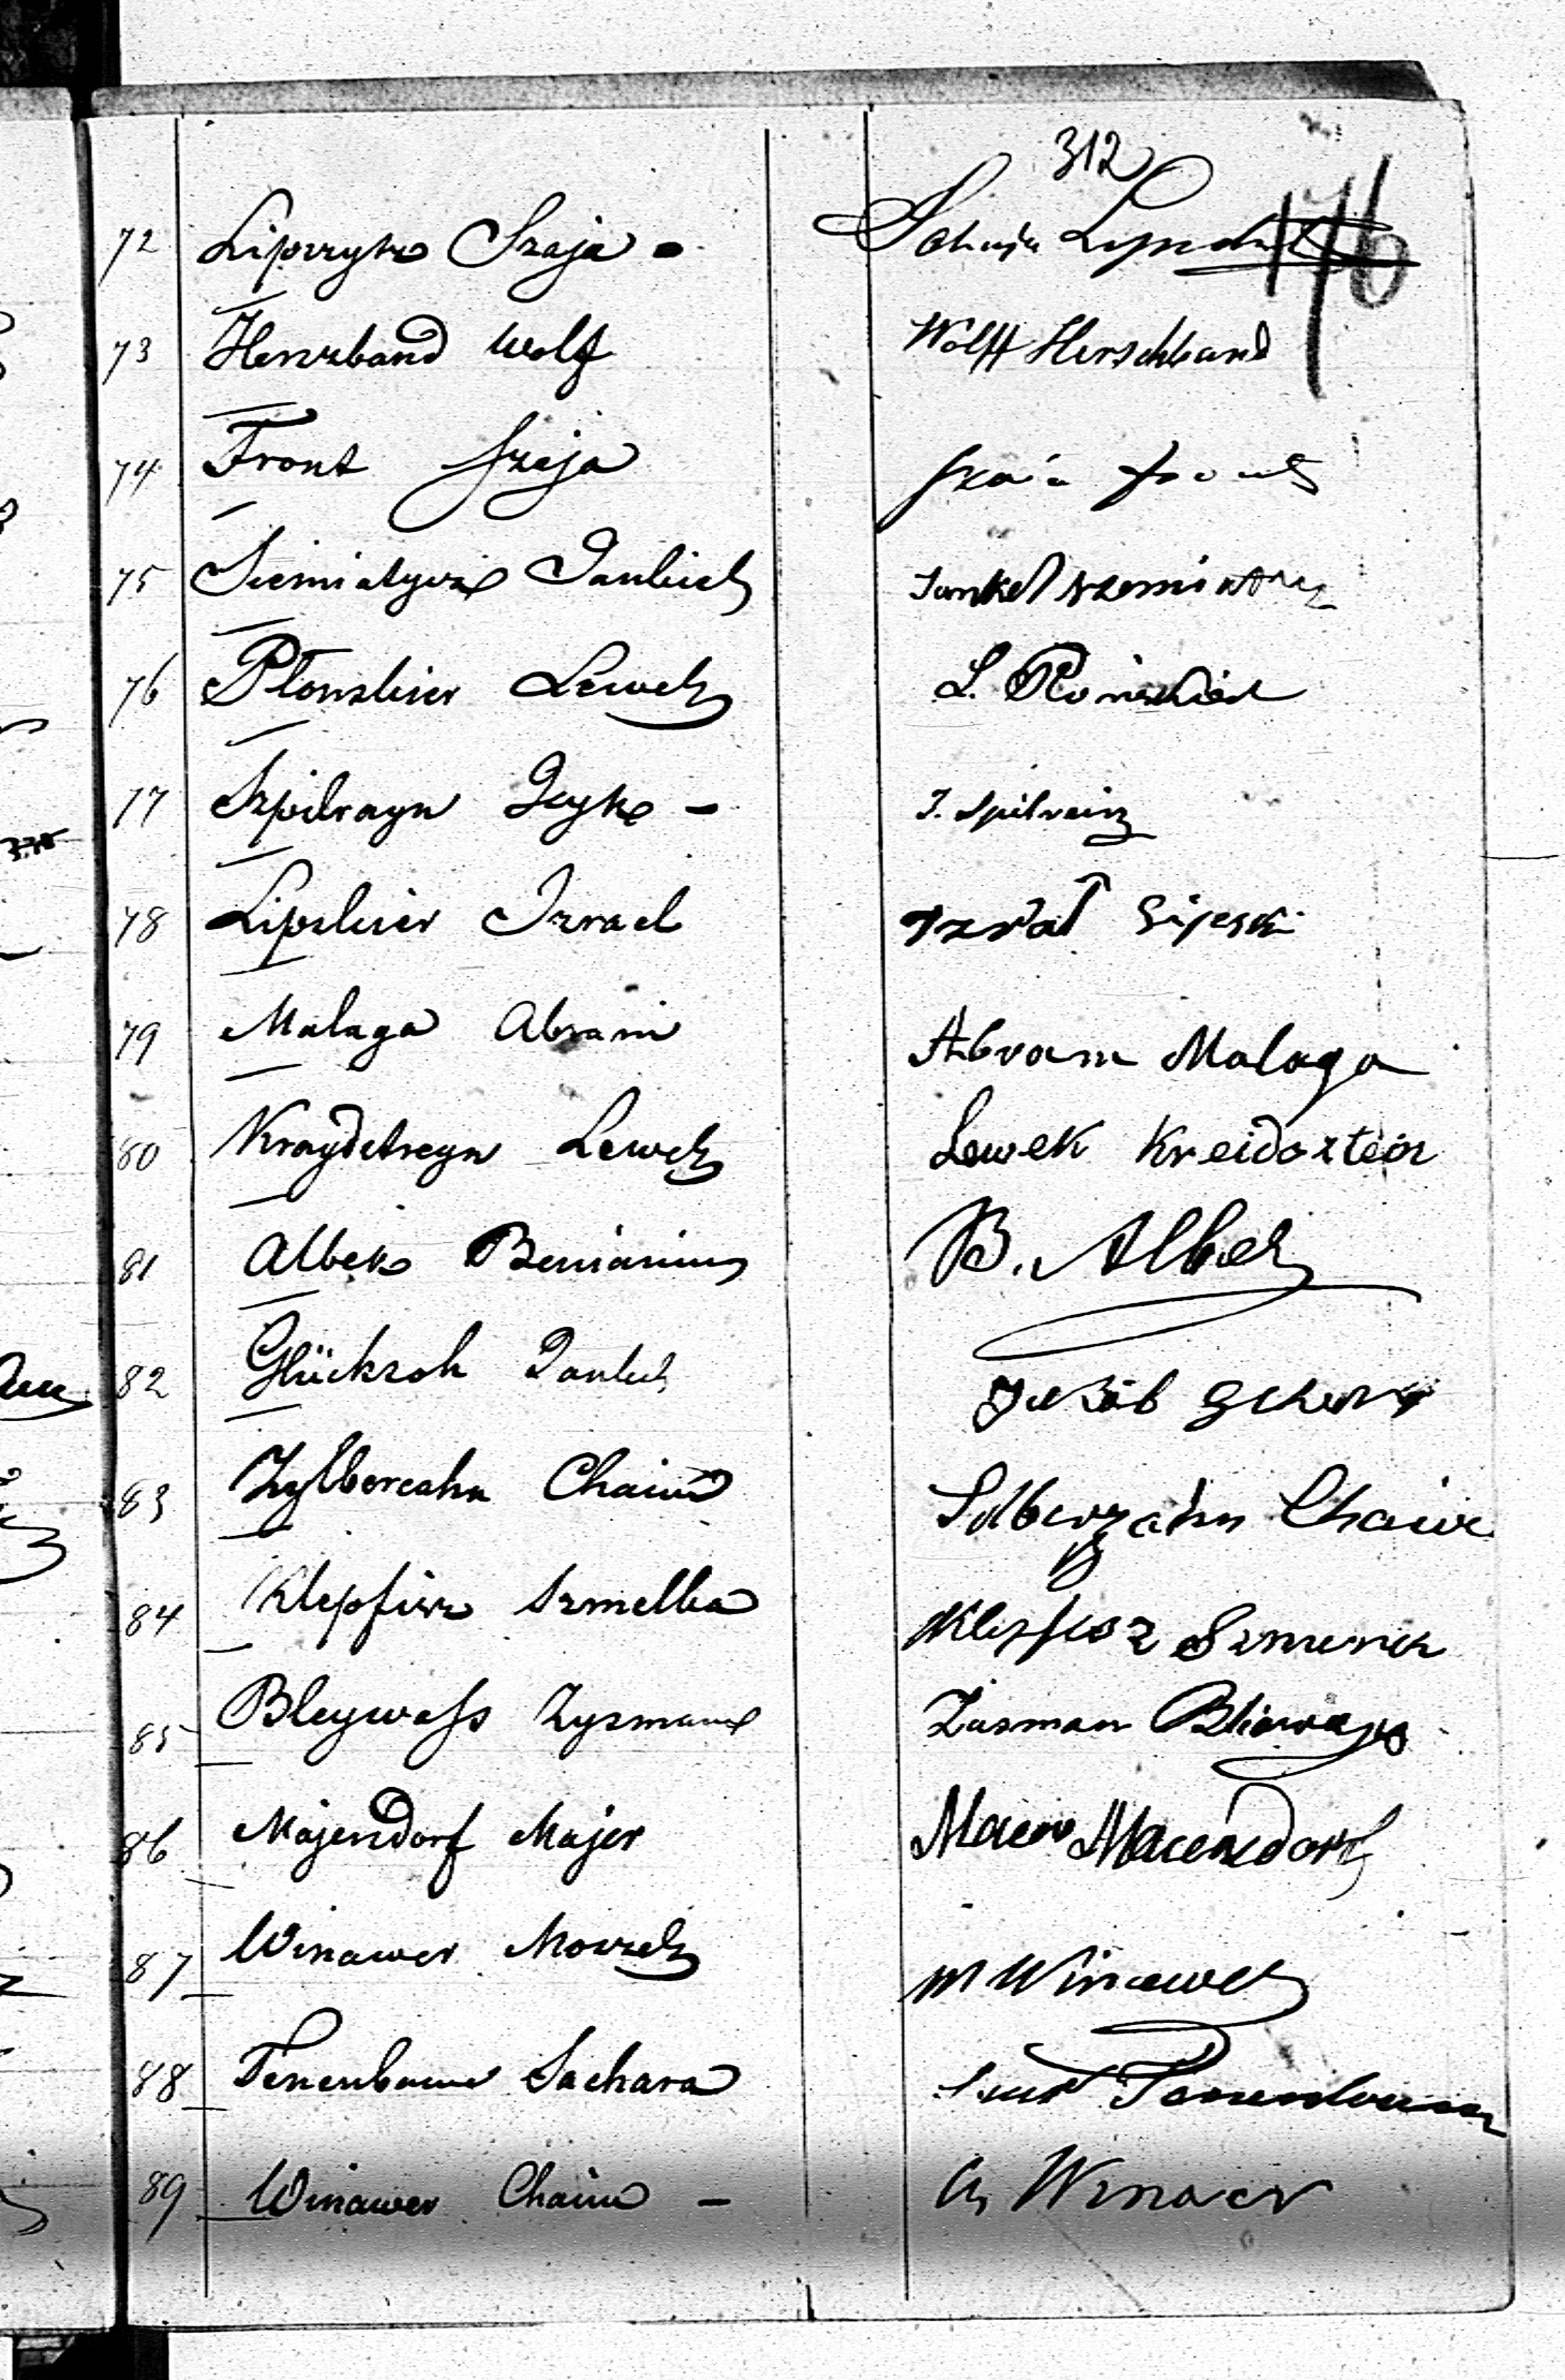 312
176
72 Lipszyk Szaja Schaja
73 Herszband Wolf Wolff Herschband
74 Front Szaja Szaia Front
75 Siemiatycki Jankiel Jankel
76 Płonskier Lewek L. Płonskier
77 Szpilrayn Icyk - I. Spilrein
78 Lipskier Izrael
79 Malaga Abram Abram Malaga
80 Kraydsteyn Lewek Lewek Kreidstein
81 Albek Beniamin B. Albek
82 Glücksoh Jankel Jakób
83 Zylbercahn Chaim Silberzahn Chaim
84 Klepfisz Szmelka Klepfisz
85 Bleywess Zysman Zusman
86 Majendorf Majer Maier Maiendorf
87 Winawer Moszek M Winawer
88 Tenenbaum Sachara Tenenbaum
89 Winawer Chaim - Ch Winawer